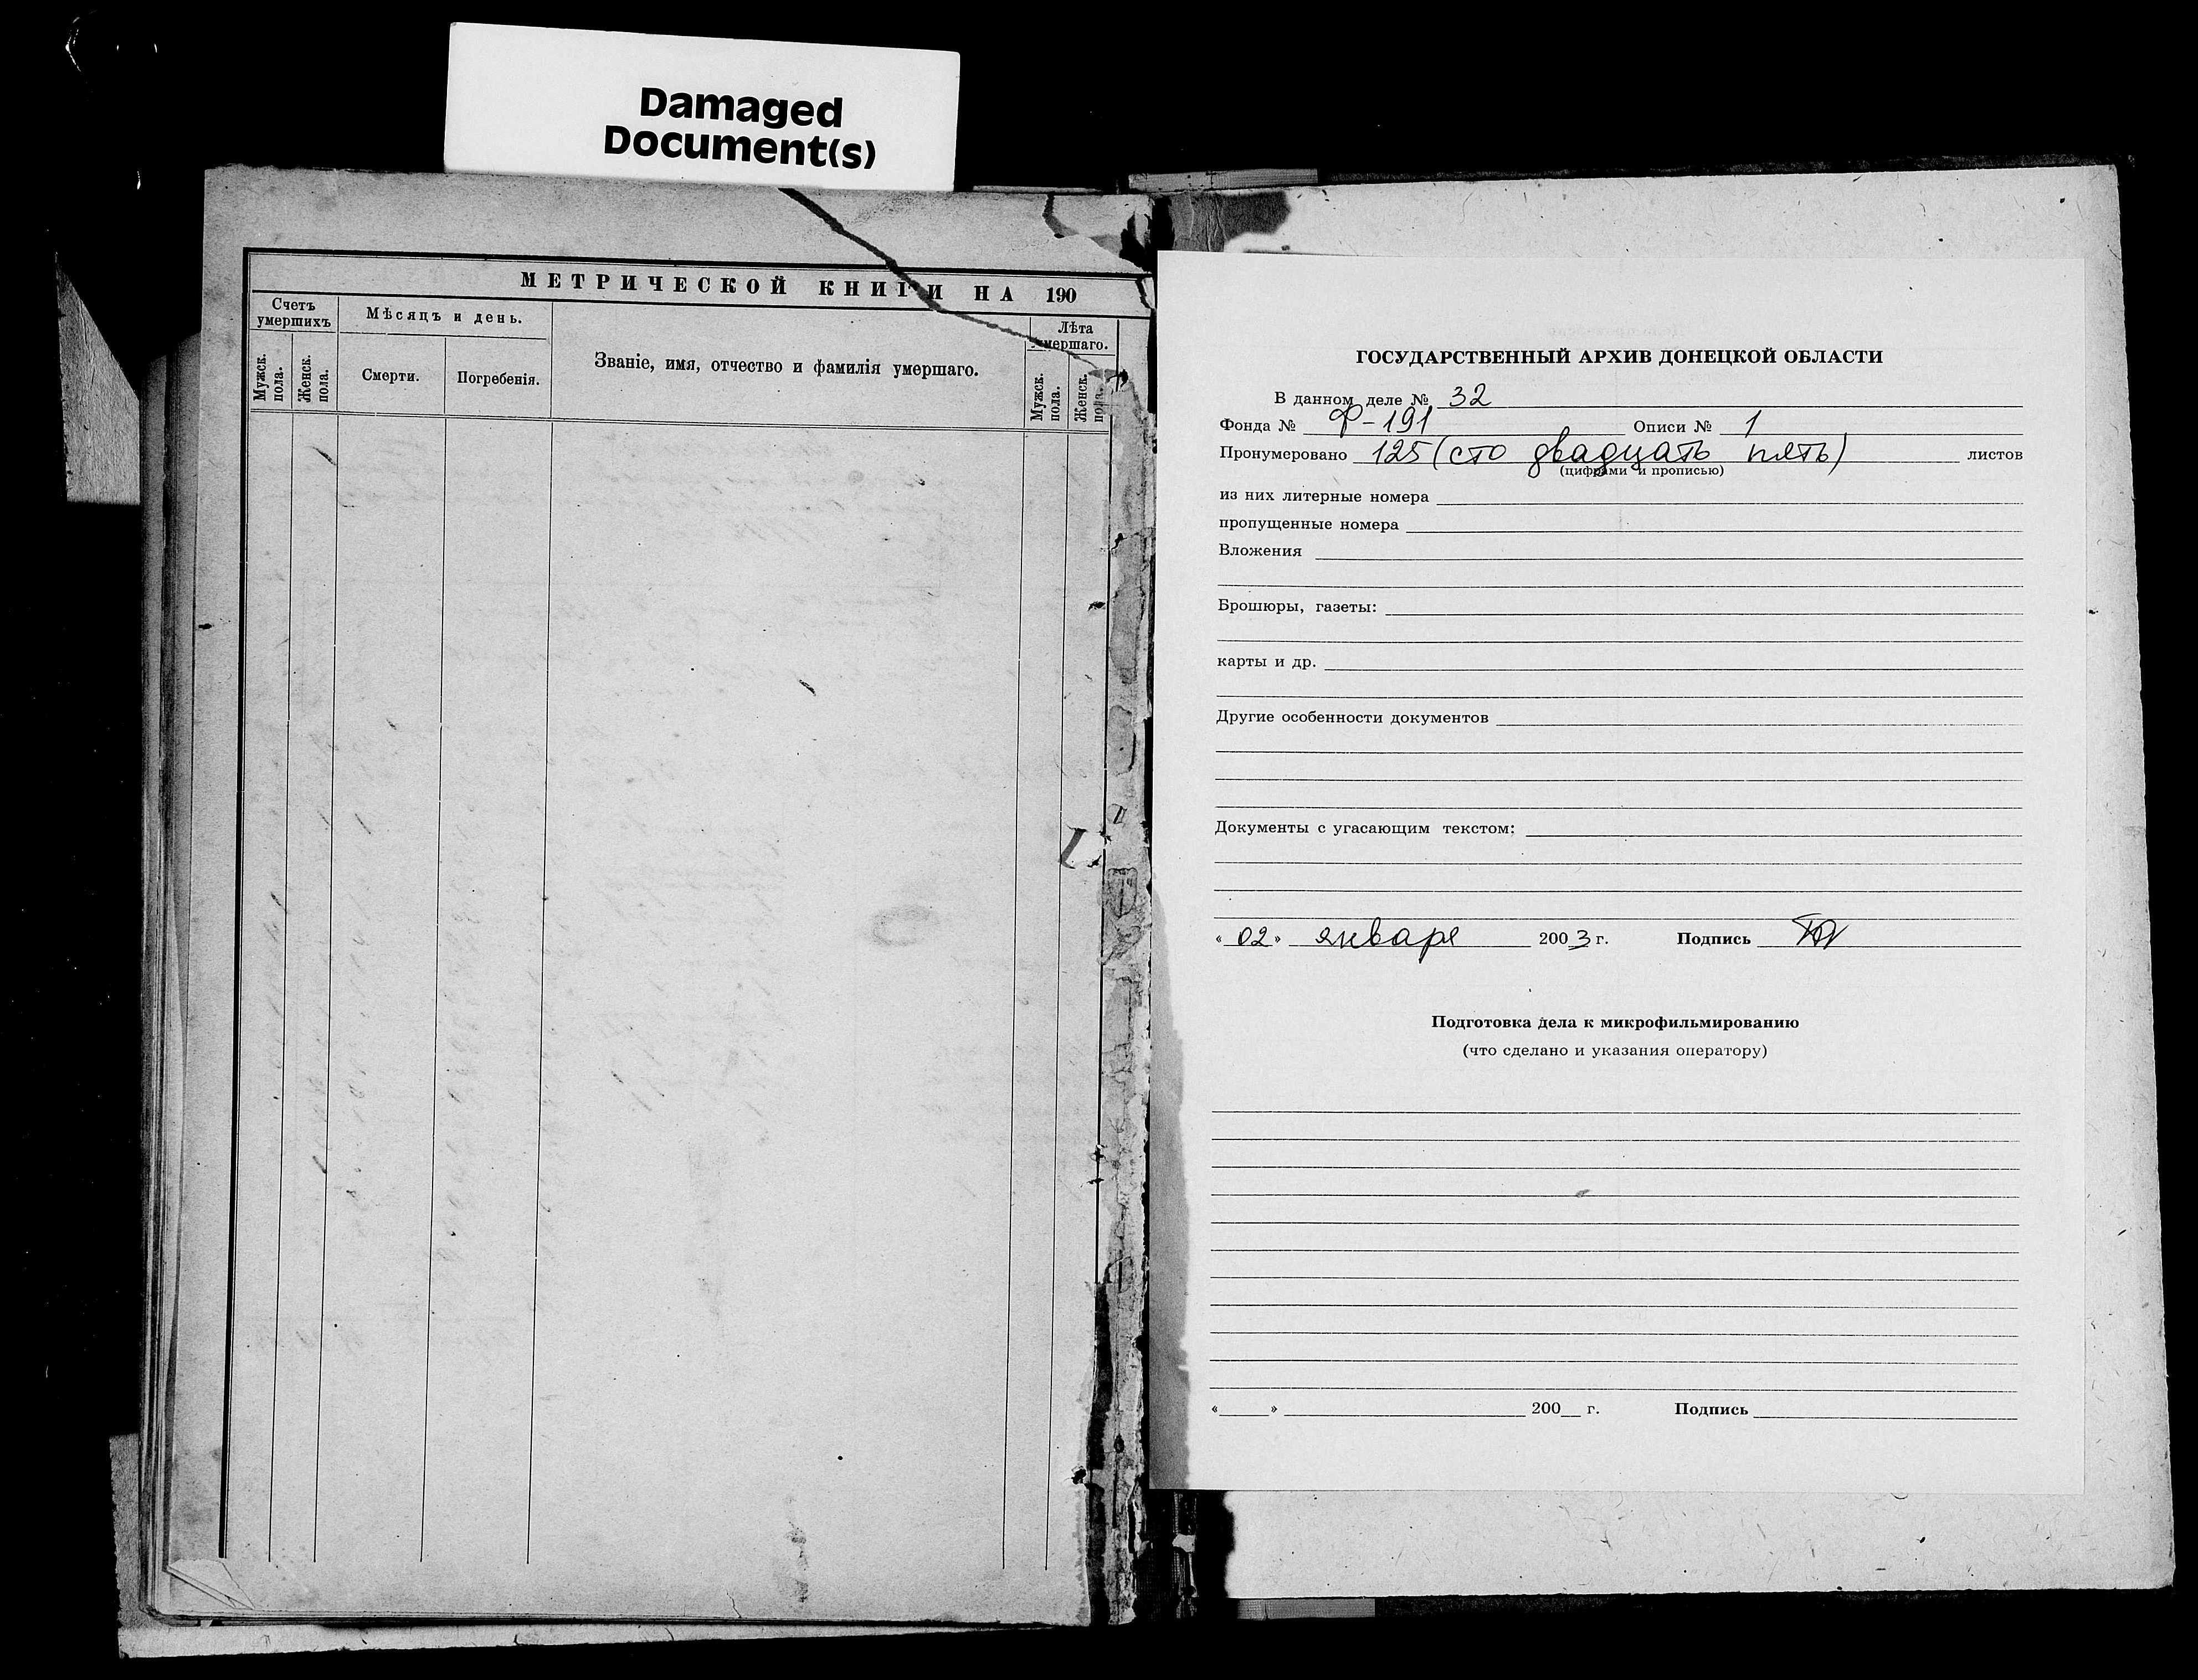 Damaged
Document(s)
МЕТРИЧЕСКОЙ КНИГИ НА 190
Счетъ умершихъ
Мужск. пола.
Женск. пола.
Мѣсяцъ и день.
Смерти.
Погребенія.
Званіе, имя, отчество и фамилія умершаго.
Лѣта умершаго.
Мужск. пола.
Женск. пола.
ГОСУДАРСТВЕННЫЙ АРХИВ ДОНЕЦКОЙ ОБЛАСТИ
В данном деле № 32
Фонда № Ф-191 Описи № 1
Пронумеровано 125 (сто двадцать пять) листов
(цифрами и прописью)
из них литерные номера
пропущенные номера
Вложения
Брошюры, газеты:
карты и др.
Другие особенности документов
Документы с угасающим текстом:
«02» января 2003 г. Подпись
Подготовка дела к микрофильмированию
(что сделано и указания оператору)
«____» ____ 200__ г. Подпись